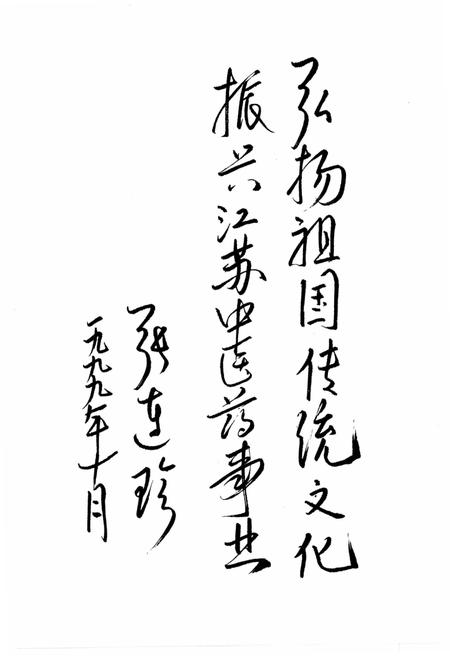 弘扬祖国传统文化
振兴江苏中医药事业
张连珍
一九九九年十月